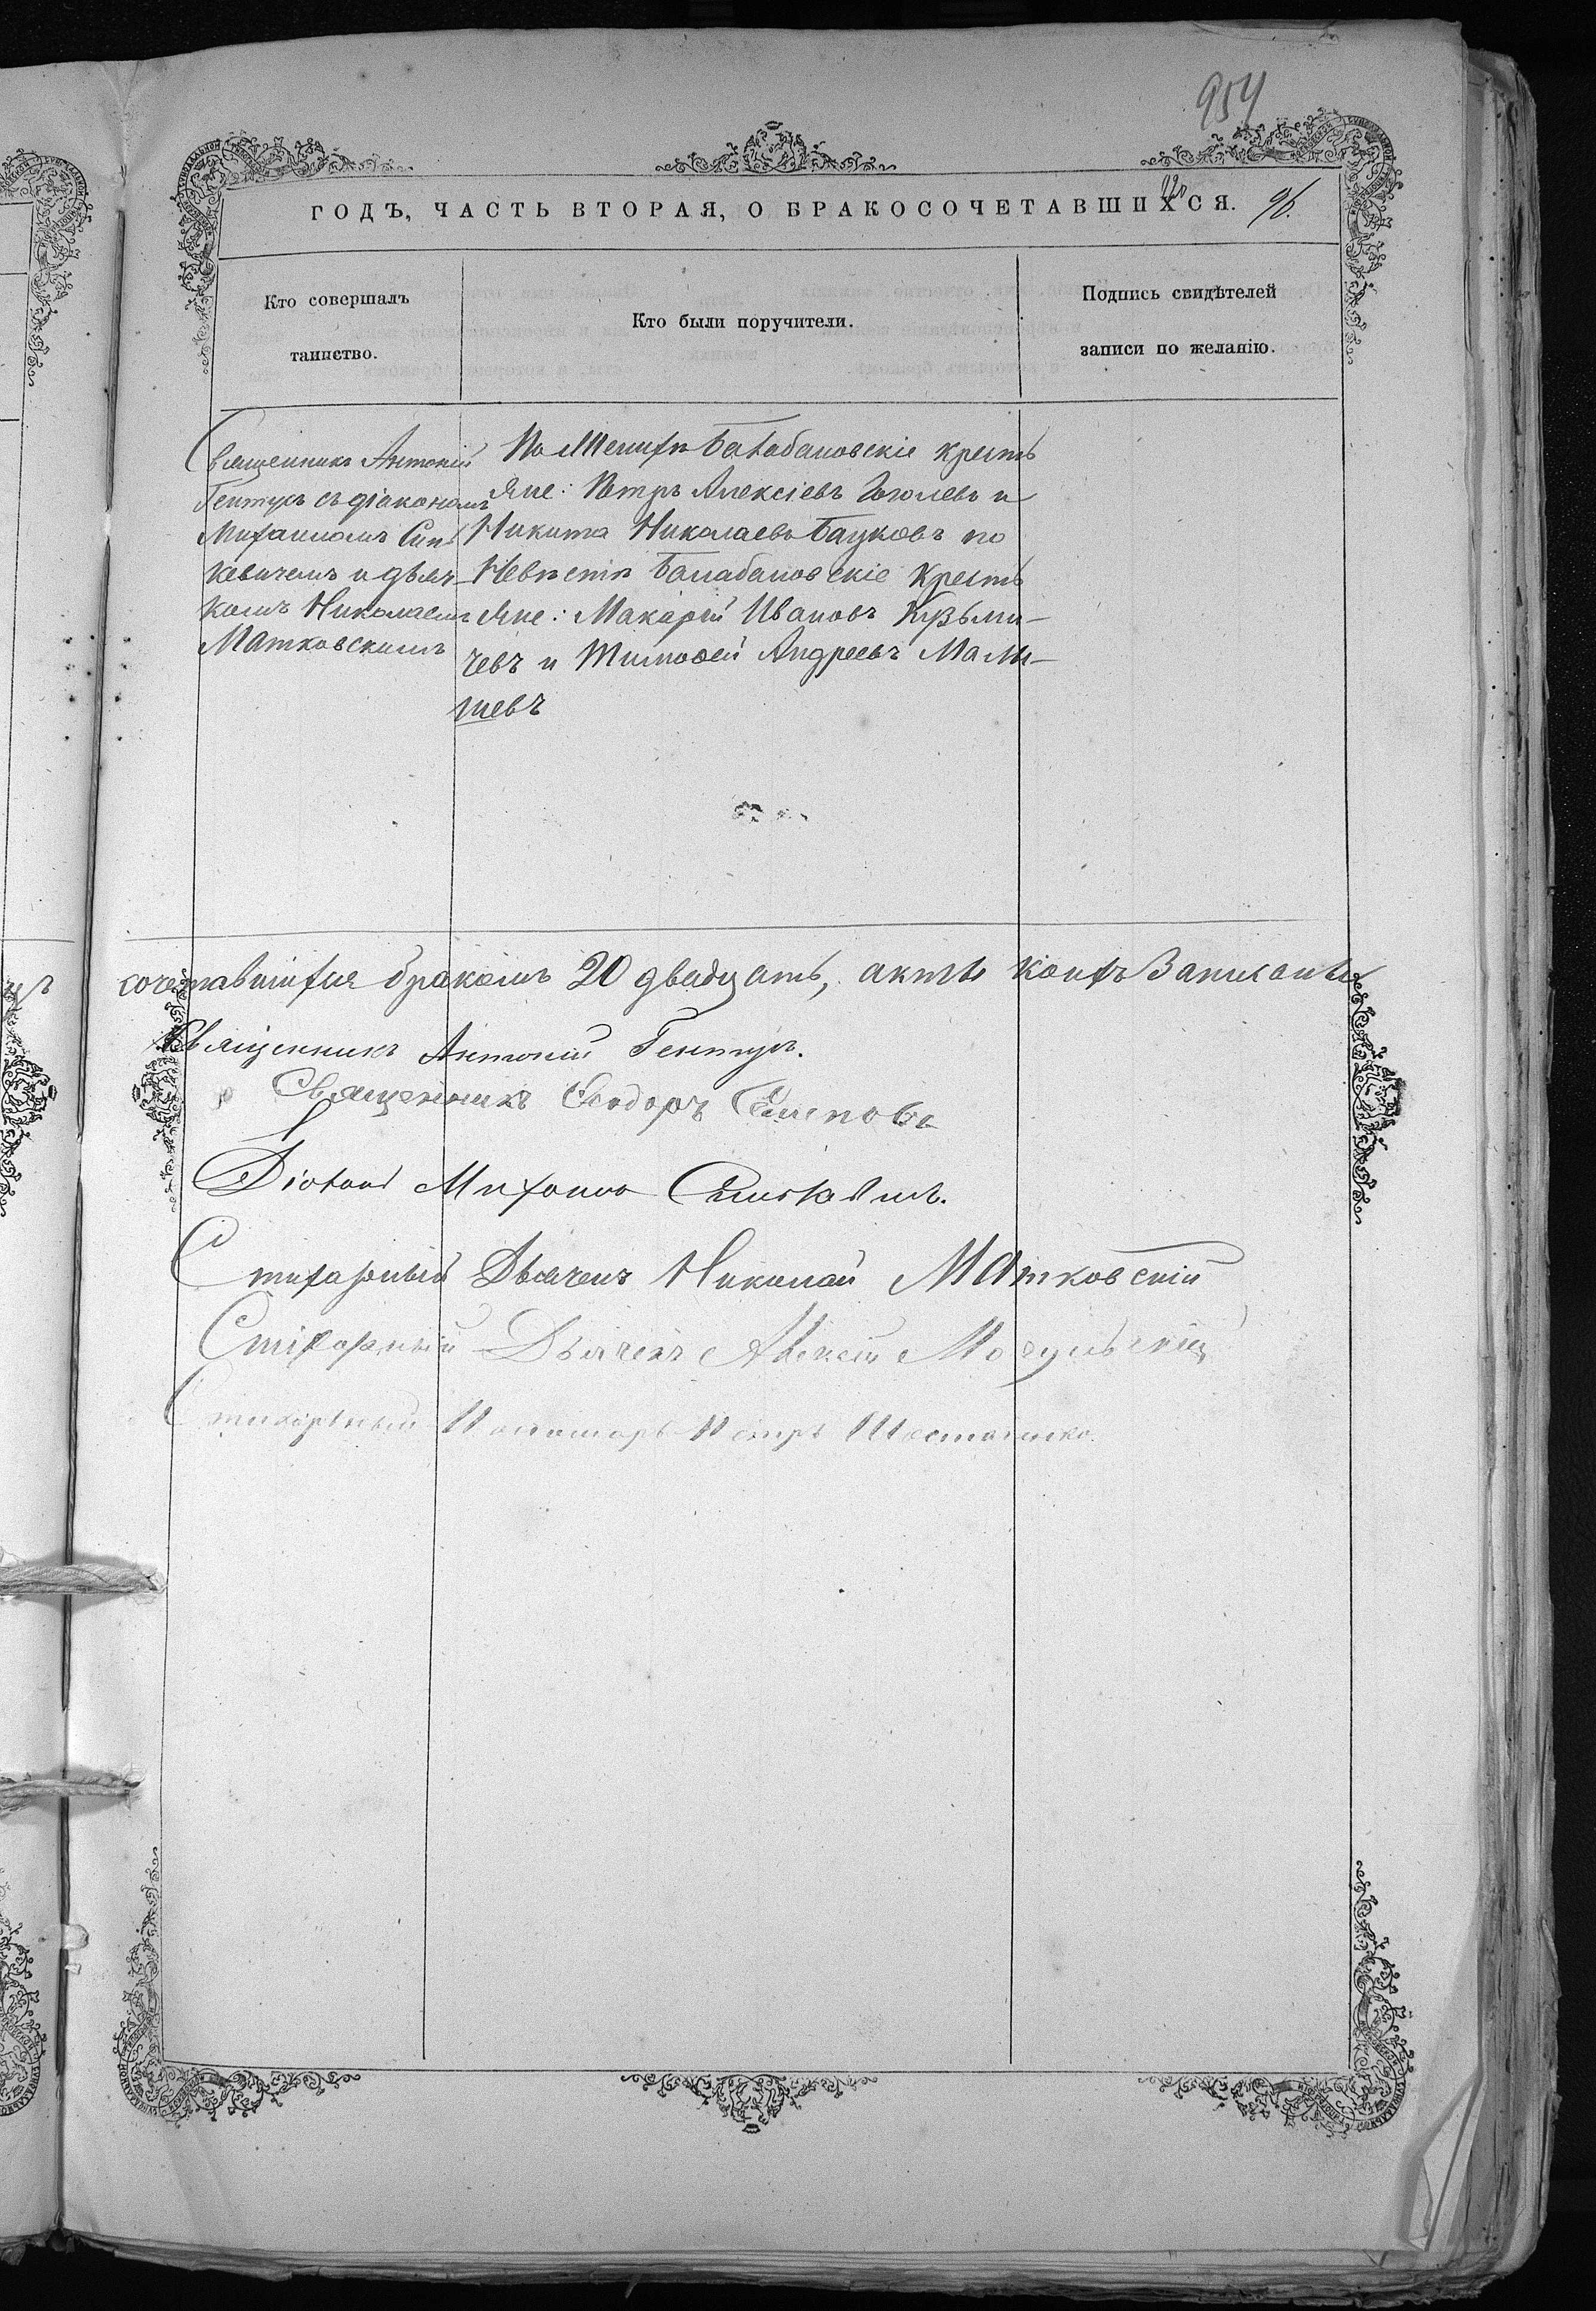 954
ГОДЪ, ЧАСТЬ ВТОРАЯ, О БРАКОСОЧЕТАВШИХСЯ.
Кто совершалъ
таинство.
Кто были поручители.
Подпись свидѣтелей
записи по желанію.
Священникъ Антоній
Гентукъ съ діакономъ
Михаиломъ Син
кевичемъ и дьяч-
комъ Николаемъ
Матковскимъ
По Женихѣ Балабановскіе кресть
яне: Петръ Алексіевъ и
Никита Николаевъ Бауковъ по
Невѣстѣ Балабановскіе кресть
яне: Макарій Ивановъ Кузьми-
чевъ и Тимофей Андреевъ Малы-
шевъ
сочетавшихся бракомъ 20 двадцать, актъ коихъ записанъ
Священникъ Антоній Гентукъ.
Священникъ Феодоръ
Діаконъ Михаилъ Синкевичъ.
Стихарный Дьячекъ Николай Матковскій
Стихарный Дьячекъ Алексій
Стихарный Пономарь Петръ